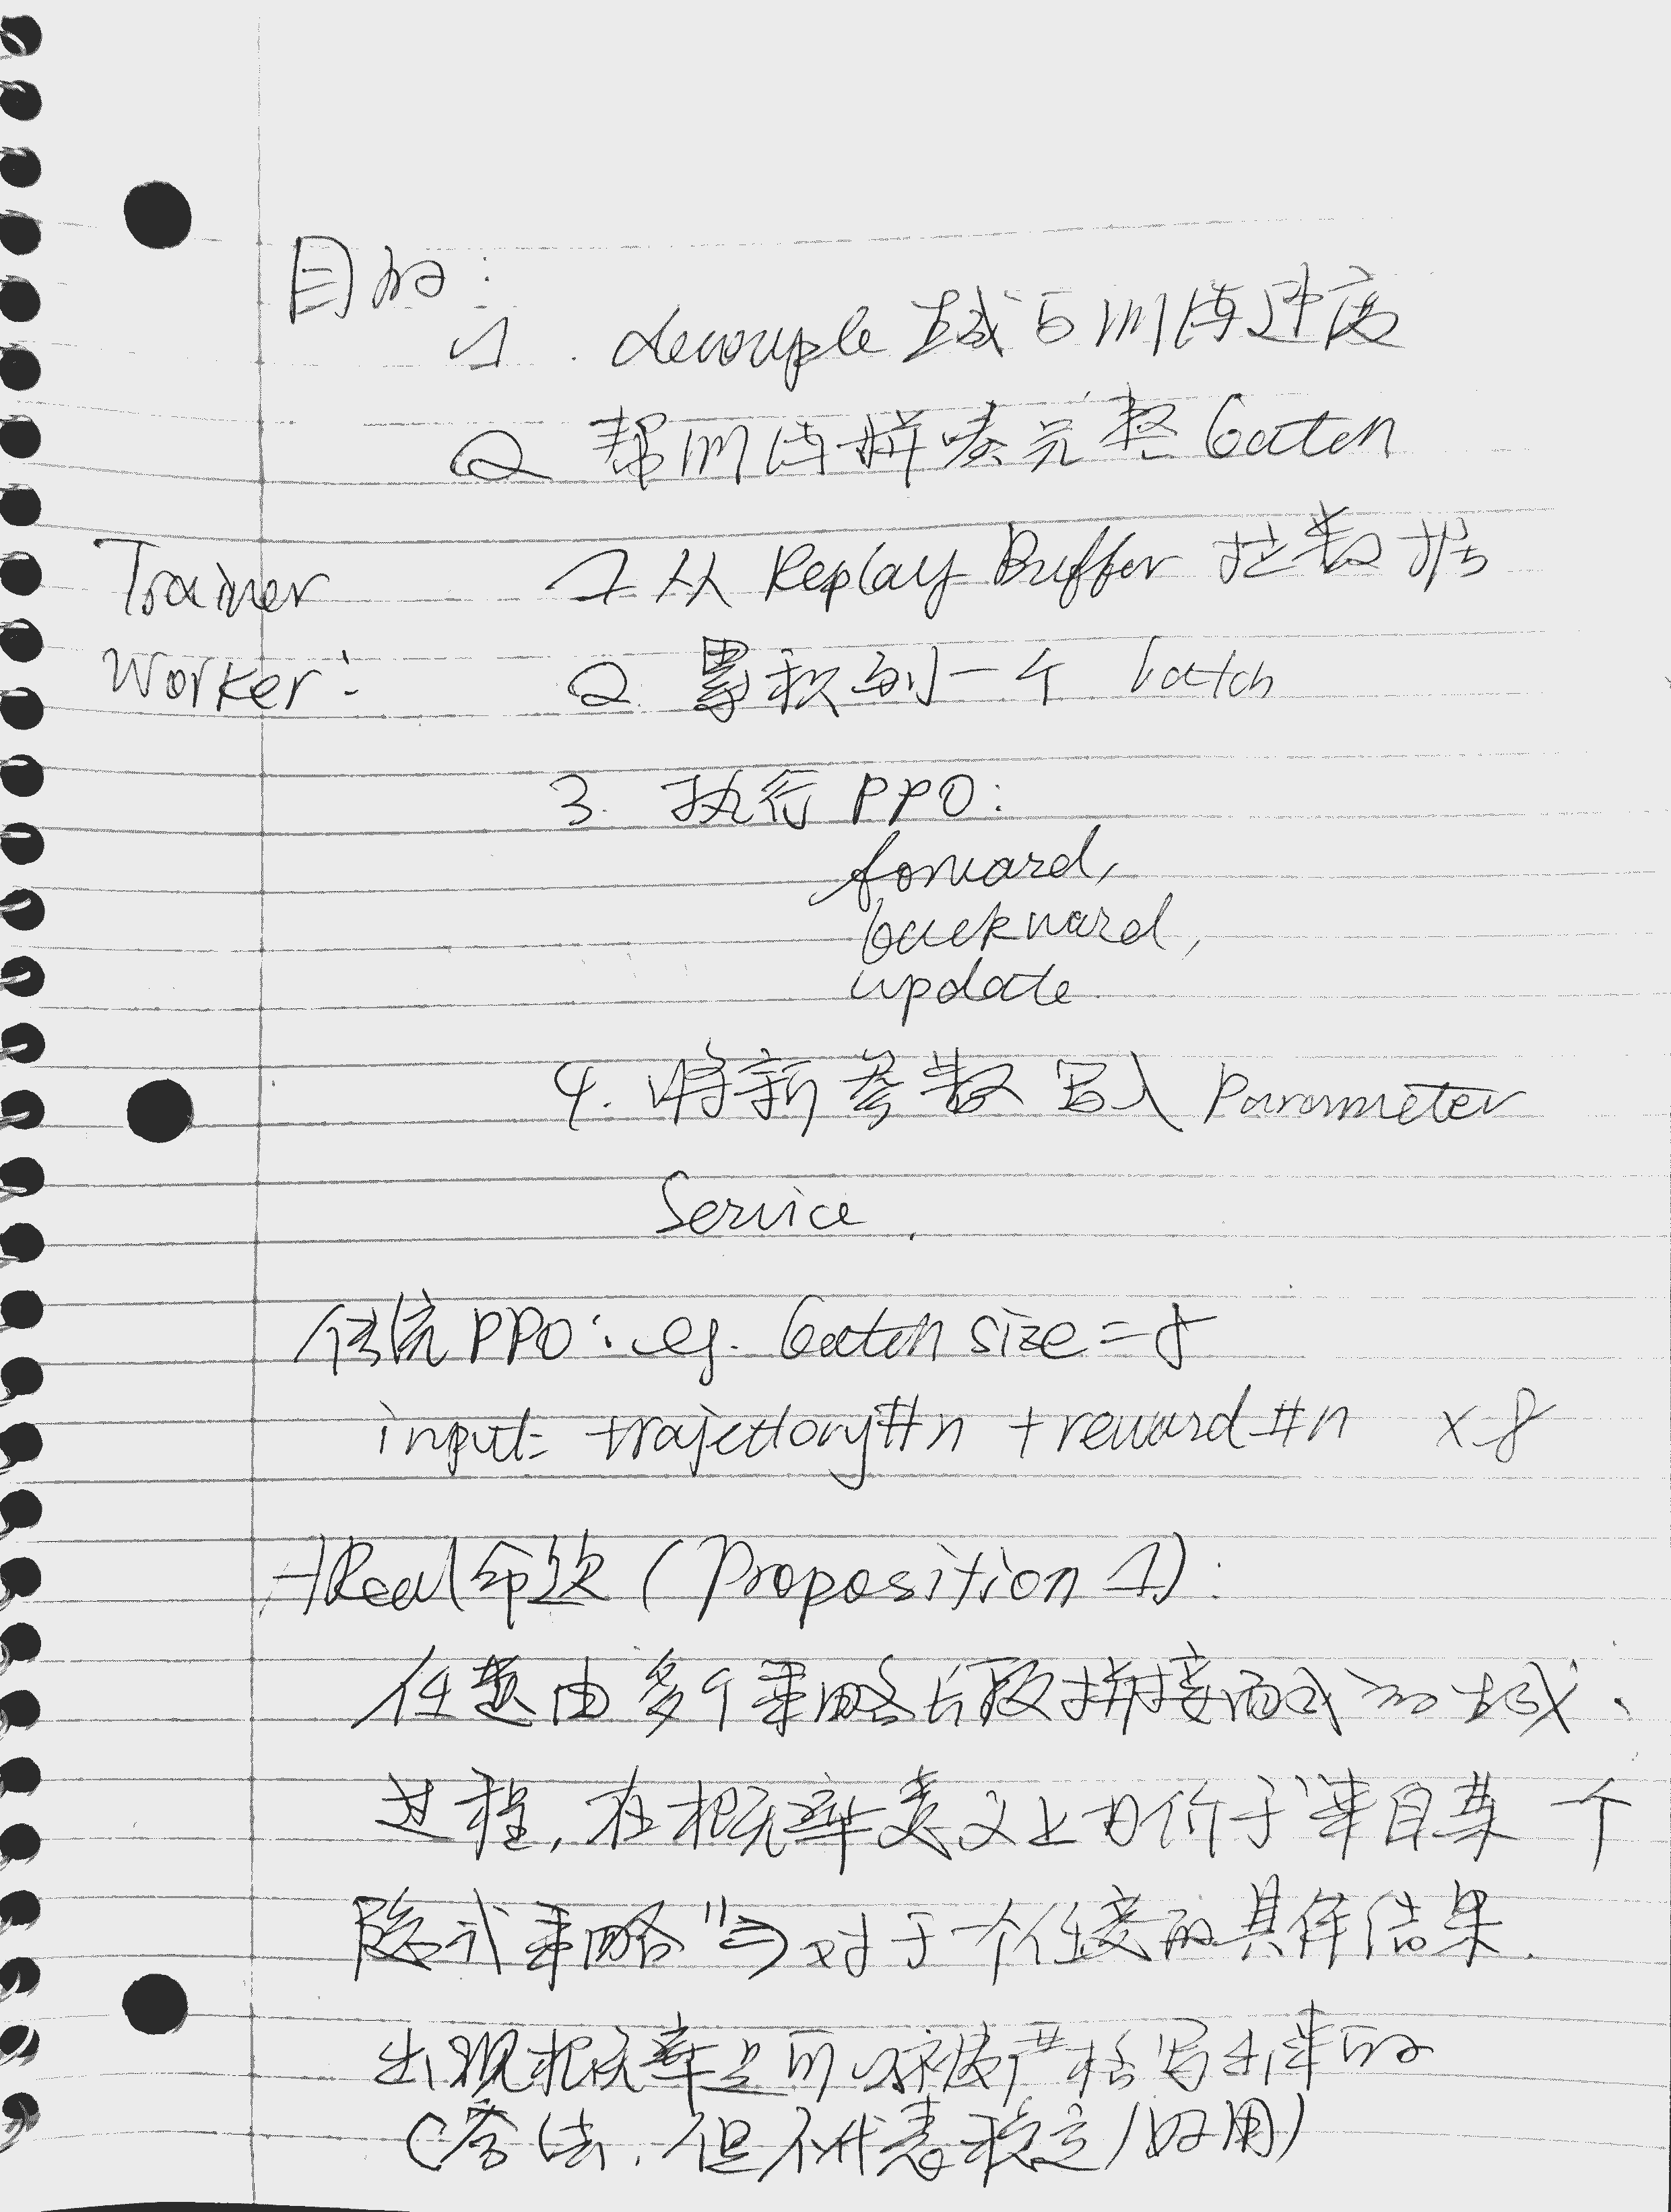 目的:
1. decouple 生成与训练进度
2 帮训练拼凑完整 batch
Trainer 1 从 Replay Buffer 拉数据
Worker: 2. 累积到一个 batch
3. 执行 PPO:
forward,
backward,
update.
4. 将新参数写入 Parameter
Service.
传统PPO: eg. batch size = 8
input: trajectory#n + reward#n x 8
AReal命题 (Proposition 1):
任意由多个策略片段拼接而成的生成
过程, 在概率意义上均价于"来自某一个
隐式策略" ⇒ 对于一个任务的具体结果.
出现概率是可以被严格写出来的
(合法, 但不代表稳定/好用)